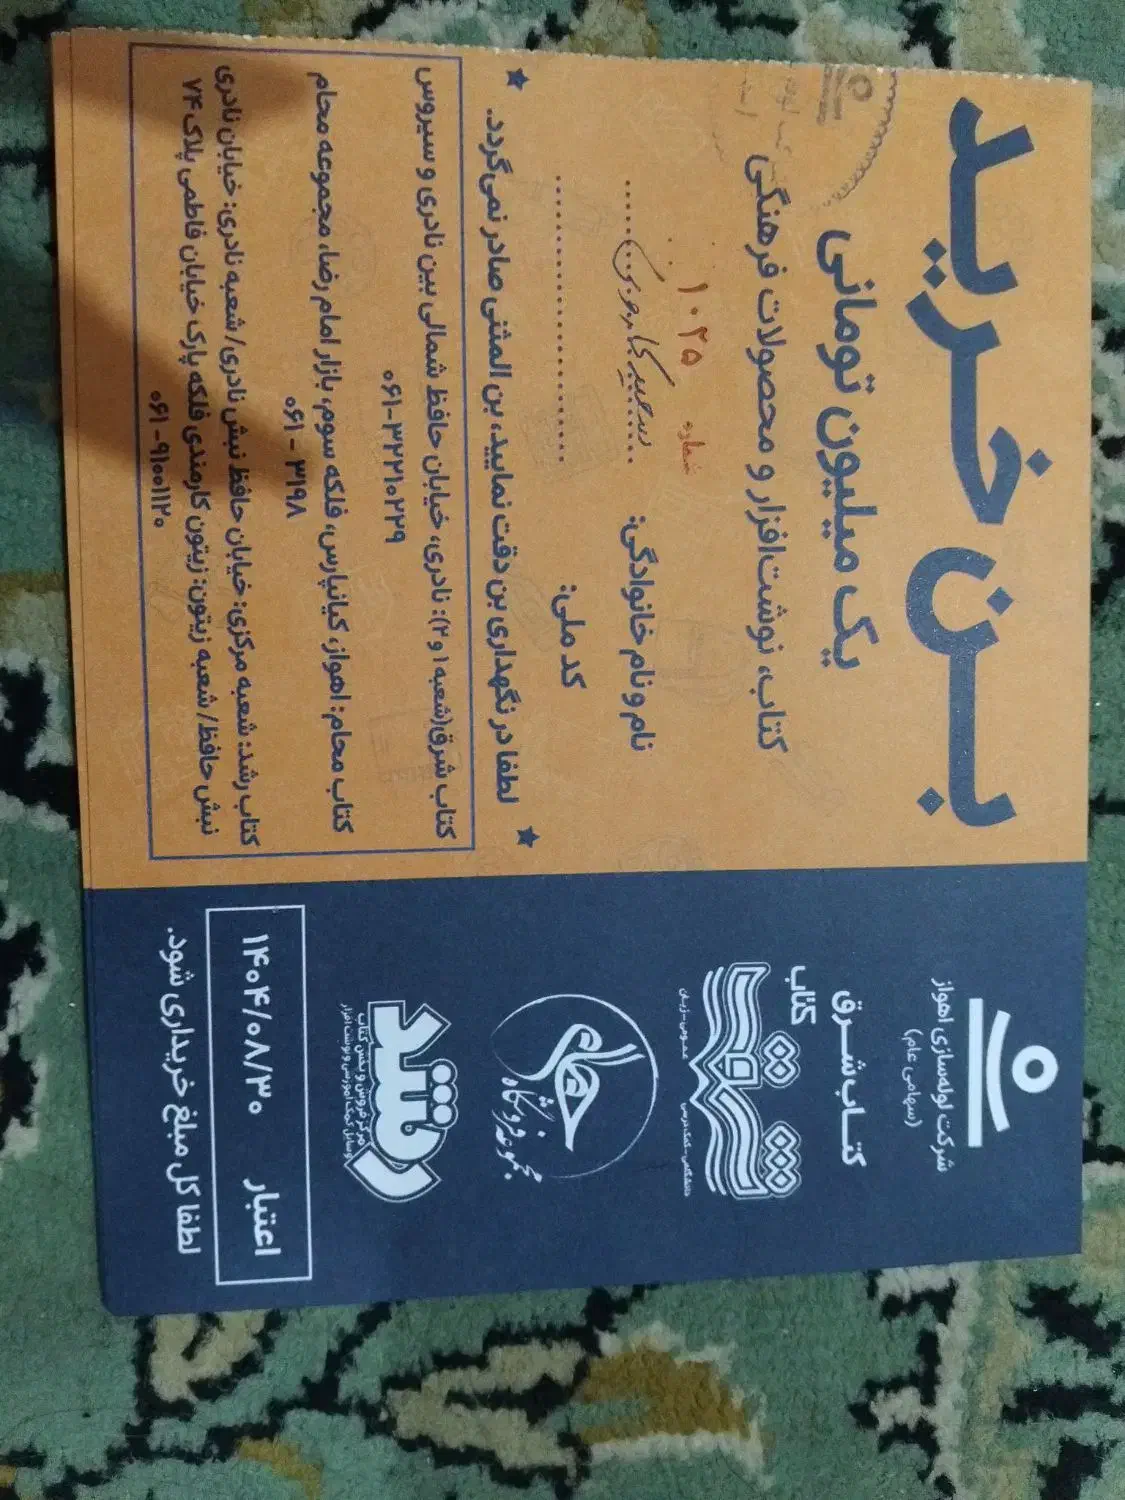 بن خرید
یک میلیون تومانی
کتاب، نوشت‌افزار و محصولات فرهنگی
شماره ۱۰۲۵
نام و نام خانوادگی: سعید
کد ملی:
لطفا در نگهداری بن دقت نمایید، بن المثنی صادر نمی‌گردد.
کتاب شرق(شعبه ۱ و ۲): نادری، خیابان حافظ شمالی بین نادری و سیروس
۰۶۱-۳۲۲۱۰۲۲۹
کتاب محام: اهواز، کیانپارس، فلکه سوم، بازار امام رضا، مجموعه محام
۰۶۱ - ۳۱۹۸
کتاب رشد: شعبه مرکزی: خیابان حافظ نبش نادری/ شعبه نادری: خیابان نادری
نبش حافظ/ شعبه زیتون: زیتون کارمندی فلکه پارک خیابان فاطمی پلاک ۷۴
۰۶۱ - ۹۱۰۰۱۱۲۰
شرکت لوله‌سازی اهواز
(سهامی عام)
کتاب شرق
کتاب
شرق
مجموعه فروشگاه
محام
رشد
مرکز فروش و پخش کتاب
و وسایل کمک آموزشی و نوشت افزار
اعتبار ۱۴۰۴/۰۸/۳۰
لطفا کل مبلغ خریداری شود.